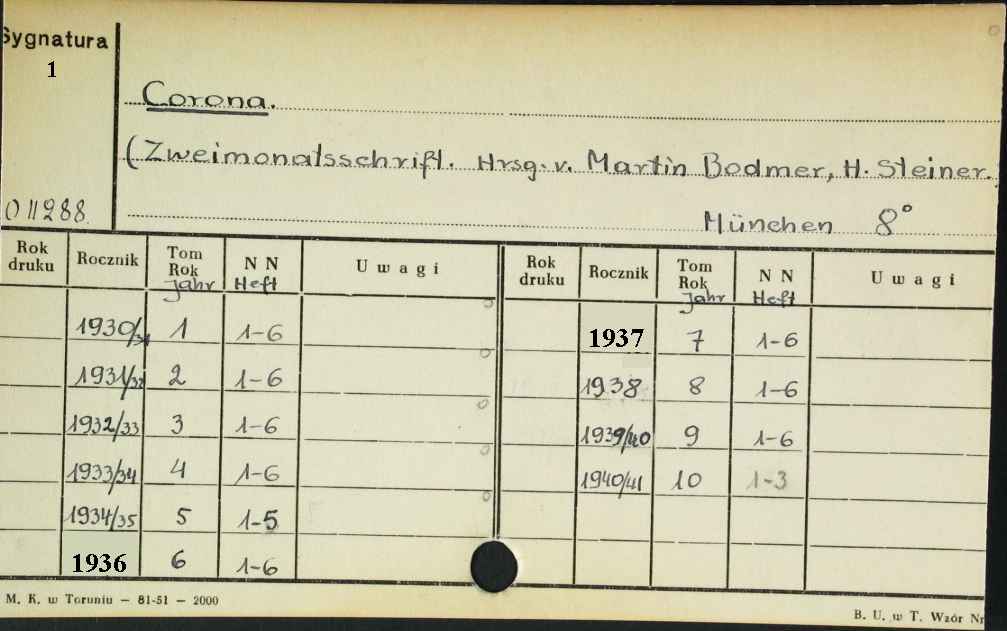 Sygnatura
1
Corona.
(Zweimonatsschrift. Hrsg. v. Martin Bodmer, H. Steiner.
011288
München 8°
Rok druku Rocznik Tom Rok Jahr N N Heft Uwagi Rok druku Rocznik Tom Rok Jahr N N Heft Uwagi
1930/31 1 1-6 1937 7 1-6
1931/32 2 1-6 1938 8 1-6
1932/33 3 1-6 1939/40 9 1-6
1933/34 4 1-6 1940/41 10 1-3
1934/35 5 1-5
1936 6 1-6
M. K. w Toruniu — 81-51 — 2000
B. U. w T. Wzór Nr